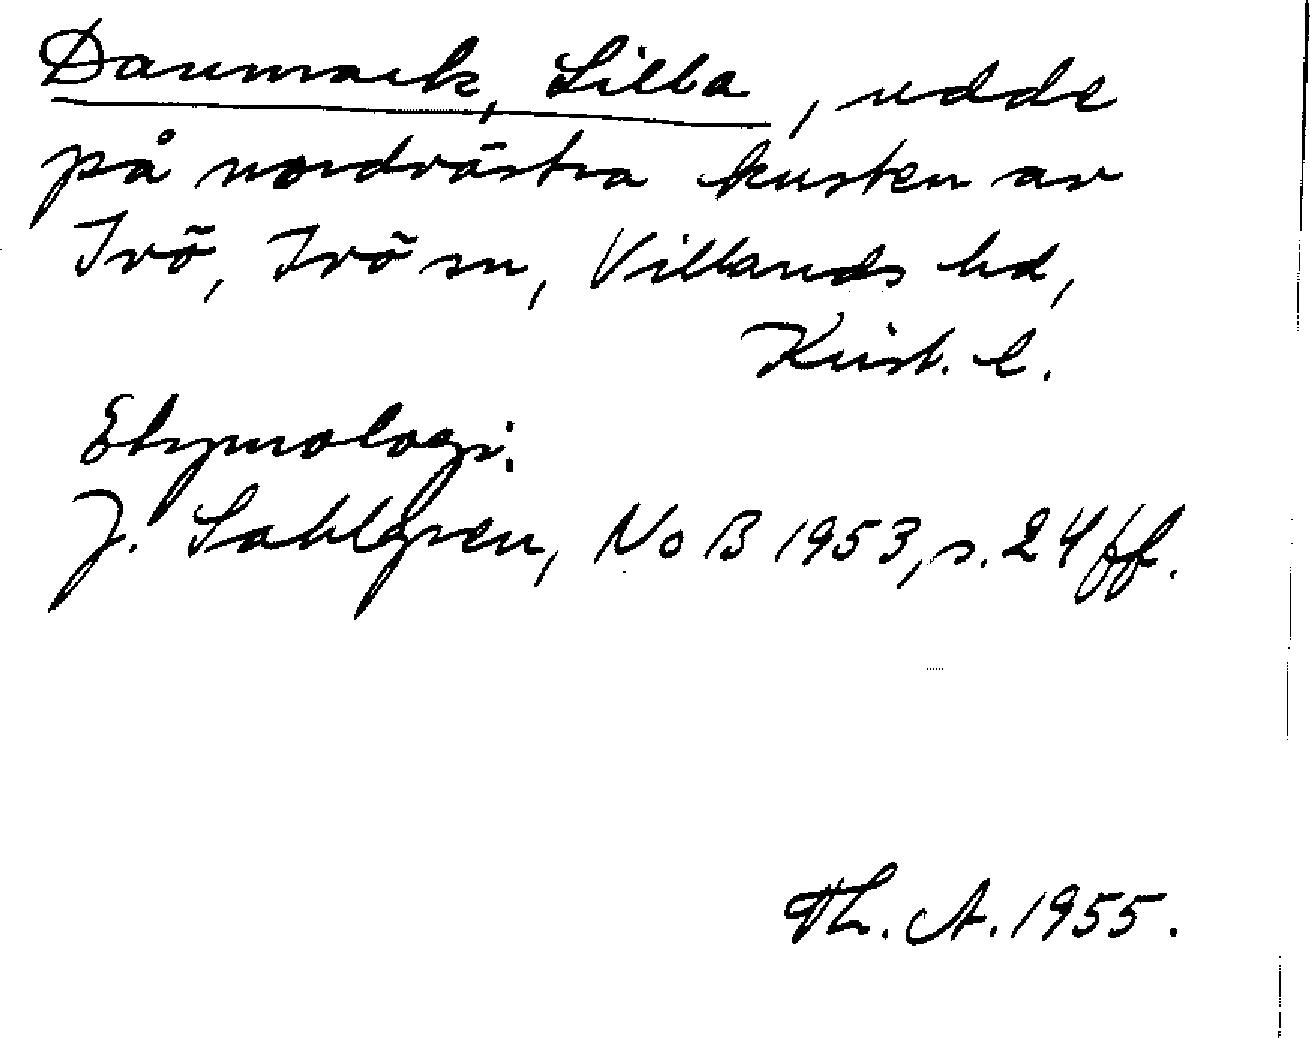 Danmark, Lilla, udde
på nordvästra kusten av
Ivö, Ivö sn, Villands hd,
Krist. l.
Etymologi:
J. Sahlgren, NoB 1953, s. 24 ff.
Th. A. 1955.